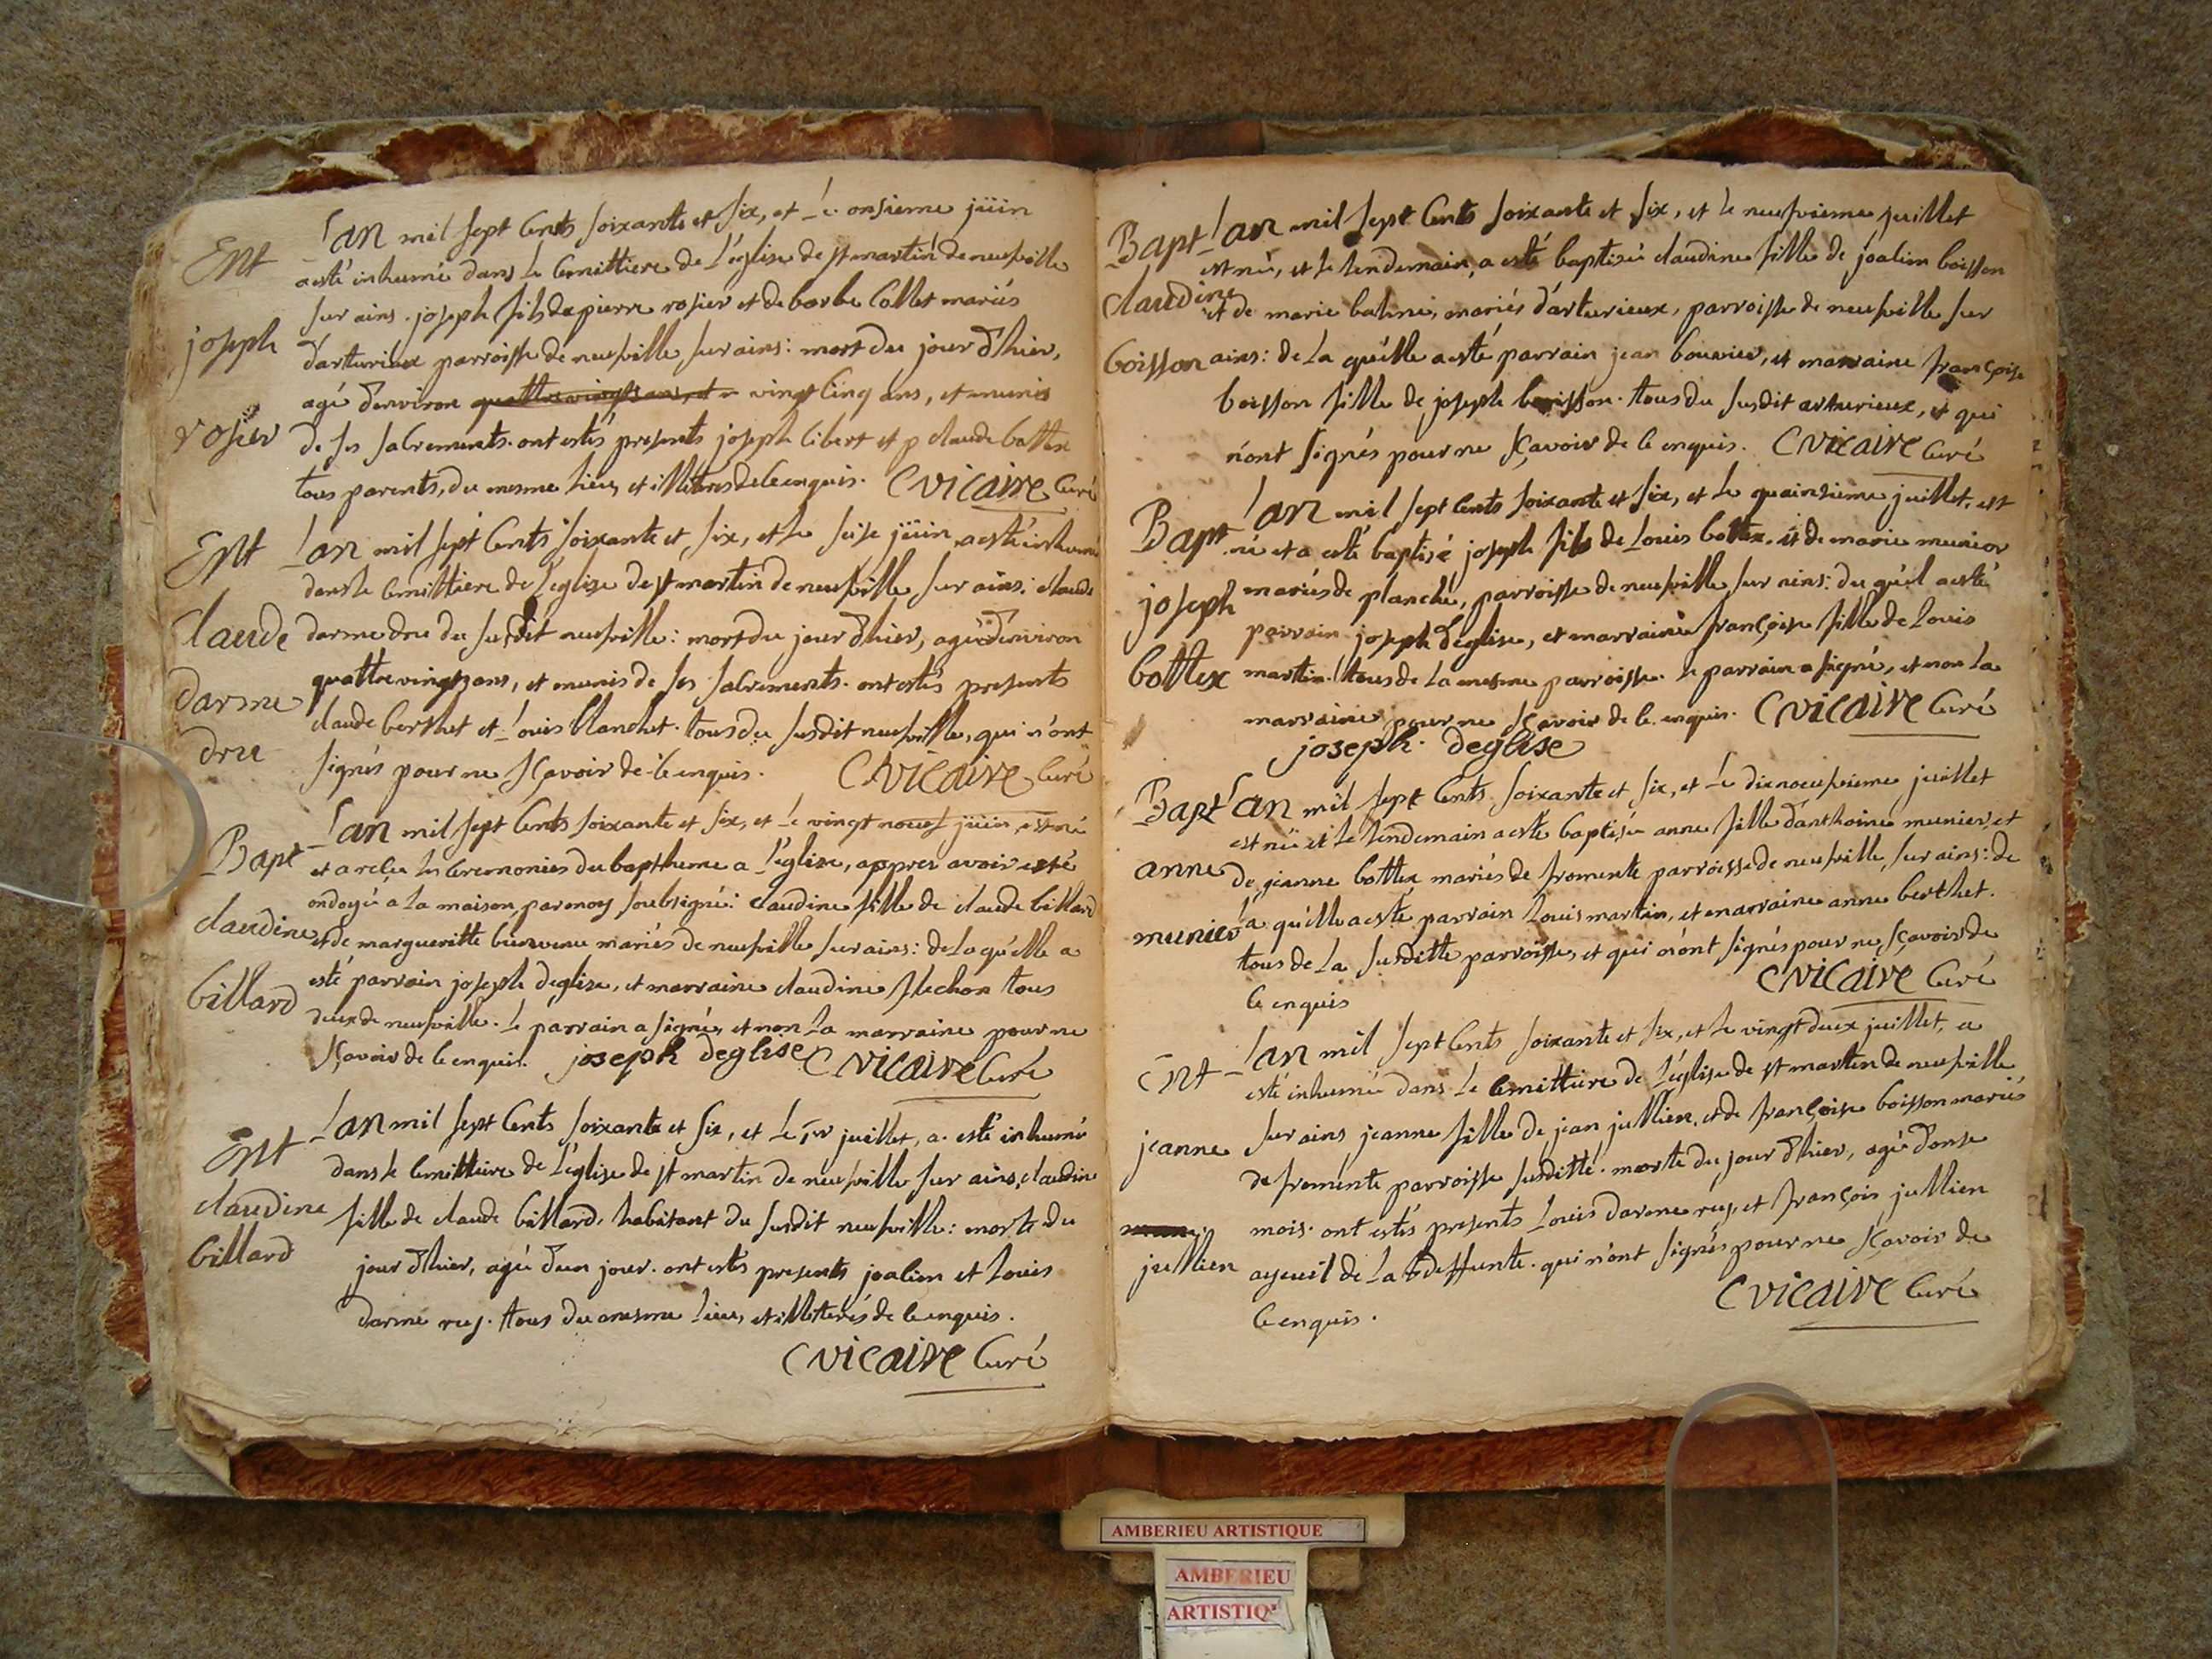 Ent
joseph
rosier
L'an mil sept Cents soixante et six, et le onsieme jüin
a esté inhumé dans le Cemittiere de L'église de st martin de neufville
sur ains. joseph fils de pierre rosier et de barbe Collet mariés
d'arturieux parroisse de neufville sur ains: mort du jour d'hier,
agé d'environ quattrevingts ans, et vingt Cinq ans, et munis
de ses sacrements. ont estés presents joseph Cibert et p claude bottex
tous parents, du mesme Lieu, et illiterés de Ce enquis. C vicaire Curé
Ent
Claude
darme
dru
L'an mil sept Cents soixante et six, et le seise jüin a esté inhumé
dans le Cemittiere de L'église de st martin de neufville sur ains: claude
darme dru du susdit neufville: mort du jour d'hier, agé d'environ
quattrevingts ans, et munis de ses sacrements. ont estés presents
claude berthet et Louis blanchet. tous du susdit neufville, qui n'ont
signés pour ne sçavoir de Ce enquis. C vicaire Curé
Bapt
claudine
billard
L'an mil sept Cents soixante et six, et le vingt neuf jüin est né
et a reçu les Ceremonies du baptheme a L'église, appres avoir esté
ondoyé a la maison, par moy soubsigné: claudine fille de claude billard
et de margueritte bienvenu mariés de neufville sur ains: de la quelle a
esté parrain joseph deglise, et marraine claudine flechon tous
deux de neufville. Le parrain a signé, et non La marraine pour ne
sçavoir de Ce enquis. joseph deglise C vicaire Curé
Ent
claudine
billard
L'an mil sept Cents soixante et six, et le 1er juillet, a esté inhumé
dans le Cemittiere de L'église de st martin de neufville sur ains, claudine
fille de claude billard, habitant du susdit neufville: morte du
jour d'hier, agé d'un jour. ont estés presents joalim et Louis
darme rey. tous du mesme Lieu, et illiterés de Ce enquis.
C vicaire Curé
Bapt
claudine
boisson
L'an mil sept Cents soixante et six, et le neufvieme juillet
est né, et le lendemain, a esté baptisé claudine fille de joalim boisson
et de marie balme, mariés d'arturieux, parroisse de neufville sur
ains: de la quelle a esté parrain jean bouvier, et marraine françoise
boisson fille de joseph boisson. tous du susdit arturieux, et qui
n'ont signés pour ne sçavoir de Ce enquis. C vicaire Curé
Bapt
joseph
bottex
L'an mil sept Cents soixante et six, et le quainsieme juillet, est
né et a esté baptisé joseph fils de Louis bottex, et de marie munier
mariés de planche, parroisse de neufville sur ains: du quel a esté
parrain joseph deglise, et marraine françoise fille de Louis
martin. tous de La mesme parroisse. Le parrain a signé, et non La
marraine pour ne sçavoir de Ce enquis. C vicaire Curé
joseph deglise
Bapt
anne
munier
L'an mil sept Cents soixante et six, et le dixneufvieme juillet
est né et le lendemain a esté baptisé anne fille d'anthoine munier, et
de jeanne bottex mariés de fromente parroisse de neufville sur ains: de
La quelle a esté parrain Louis martin, et marraine anne berthet.
tous de La susditte parroisse, et qui n'ont signés pour ne sçavoir de
Ce enquis C vicaire Curé
Ent
jeanne
jullien
L'an mil sept Cents soixante et six, et le vingt deux juillet, a
esté inhumé dans le Cemittiere de L'église de st martin de neufville
sur ains jeanne fille de jean jullien, et de françoise boisson mariés
de fromente parroisse susditte. morte du jour d'hier, agé d'onse
mois. ont estés presents Louis darme rey, et françois jullien
ayeuil de La deffunte. qui n'ont signés pour ne sçavoir de
Ce enquis. C vicaire Curé
AMBERIEU ARTISTIQUE
AMBERIEU
ARTISTIQ